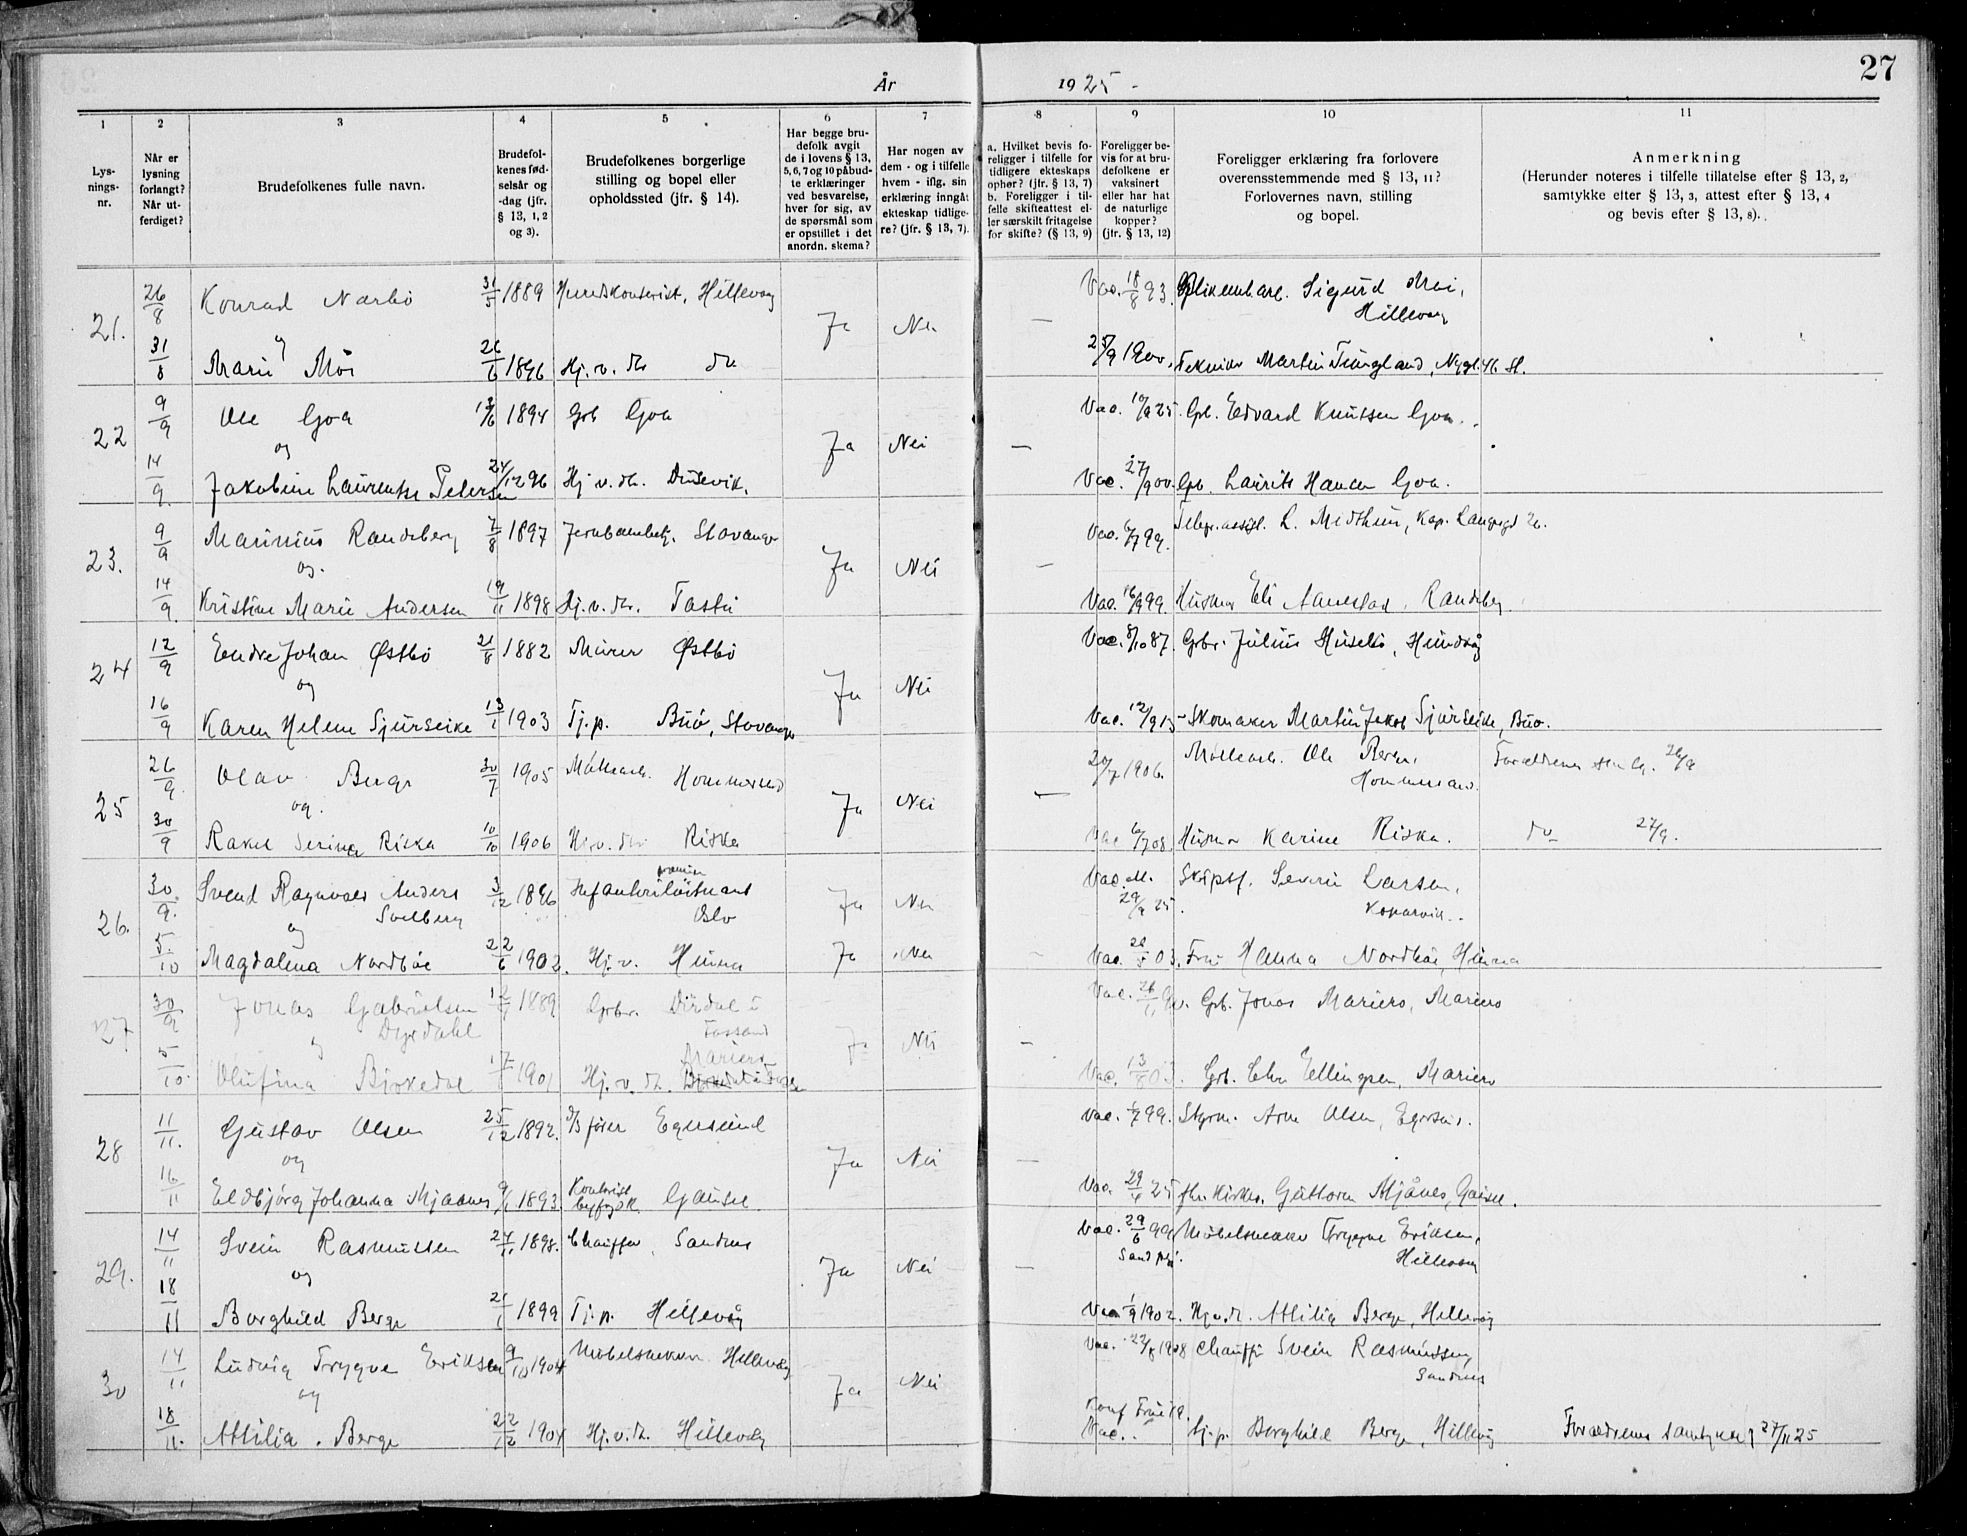 År 1925 -
27
1 2 3 4 5 6 7 8 9 10 11
Lys-
nings-
nr.
Når er
lysning
forlangt?
Når ut-
ferdiget?
Brudefolkenes fulle navn.
Brudefol-
kenes fød-
selsår og
-dag (jfr.
§ 13, 1, 2
og 3).
Brudefolkenes borgerlige
stilling og bopel eller
opholdssted (jfr. § 14).
Har begge bru-
defolk avgit
de i lovens § 13,
5, 6, 7 og 10 påbud-
te erklæringer
ved besvarelse,
hver for sig, av
de spørsmål som
er opstillet i det
anordn. skema?
Har nogen av
dem - og i tilfelle
hvem - iflg. sin
erklæring inngåt
ekteskap tidlige-
re? (jfr. § 13, 7).
a. Hvilket bevis fo-
religger i tilfelle for
tidligere ekteskaps
ophør? (jfr. § 13, 7)
b. Foreligger i til-
felle skifteattest el-
ler særskilt fritagelse
for skifte? (§ 13, 9)
Foreligger be-
vis for at bru-
defolkene er
vaksinert
eller har hat
de naturlige
kopper?
(jfr. § 13, 12)
Foreligger erklæring fra forlovere
overensstemmende med § 13, 11?
Forlovernes navn, stilling
og bopel.
Anmerkning
(Herunder noteres i tilfelle tillatelse efter § 13, 2,
samtykke efter § 13, 3, attest efter § 13, 4
og bevis efter § 13, 8).
21. 26/8 Konrad Narbö 31/5 1889 Hillevåg Ja Nei — Vac. 18/8 93. Sigurd Moi,
Hillevåg
og
31/8 Marie Moi 26/6 1896 Hj. v. do Tekniker Martin Tungland,
22 9/9 Ole Goa 1894 Grb Goa Ja Nei — Vac. 25. Gb. Edvard Knutsen Goa.
og
14/9. Jakobine Laurentse Petersen 24/12 96 Hj. v. Dusevik. Vac. 27/9 00. Gb. Laurits Hansen Goa.
23. 9/9 Marinius Randeberg 7/8 1897 Jernbanebetj. Stavanger Ja Nei — Vac. 6/7 99. Telegr.assist. L. Midthun,
og.
14/9. Kristine Marie Andersen 19/11 1898 Hj. v. Tasta Vac. 16/9 99. Eli Randeberg
24 12/9 Endre Johan Østbö 21/8 1882 Murer Østbö Ja Nei Vac. 8/10 87. Grbr. Julius Husebö, Hundvåg
og
16/9 Karen Helene Sjurseike 13/1 1903 Tj. p. Buö, Stavanger Vac. 12/9 15 - Skomaker Martin Jakob Sjurseike, Buö.
25 26/9. Olav Berge 30/7 1905 Hommersand Ja Nei — 20/7 1906. Ole Berge,
Hommersand. 26/9
og.
30/9 Rakel Serina Riska 10/10 1906 Riska Vac 6/7 08. Karine Riska. do 27/9.
26. 30/9. Svend Ragnvald Anders
Solberg 3/12 1896 Oslo Ja Nei Vac. 29/9 25. Skipsf. Severin Larsen,
Kopervik.
og
5/10 Magdalena Nordböe 22/6 1902. Hj. v. Hinna Ja Nei - Vac. 03. Fru Hanna Nordböe, Hinna
27 30/9 Jonas Gabrielsen
Dyrdahl 1889 Grbr. Dirdal i
Fossand Nei — Vac. 26/1 Grb. Jonas Mariero, Mariero
og
5/10. Olufina Birkedal 1901 Hj. v. Mariero Vac. 13/8 03. Grb. Ellingsen, Mariero
28 11/11. Gustav Olsen 25/12 1892. Egersund Ja Nei — Vac. 99. Styrm. Arne Olsen, Egersund.
og
16/11 Eldbjörg Johanna Mjaanes 9/1 1893. Kontorist
Gausel. Vac. 29/4 25 Guttorm Mjånes, Gausel.
29. 14/11 Svein Rasmussen 24/11 1898. Chauffør, Sandnes Ja Nei — Vac. 29/6 99 Möbelsnekker Trygve Eriksen,
Hillevåg
og
18/11 Borghild Berge 21/1 1899 Tj. p. Hillevåg Vac. 1/9 1902. Hj. v. Attilia Berge, Hillevåg
30 14/11 Ludvig Trygve Eriksen 9/10 1904 Möbelsnekker Hillevåg Ja Nei Vac. 22/8 1908 Chauffør Svein Rasmussen,
Sandnes
og
18/11. Attilia Berge 22/12 1904 Hj. v. Hillevåg Vac. Tj. p. Borghild Berge, Hillevåg Forældrenes samtykke 27/11 25